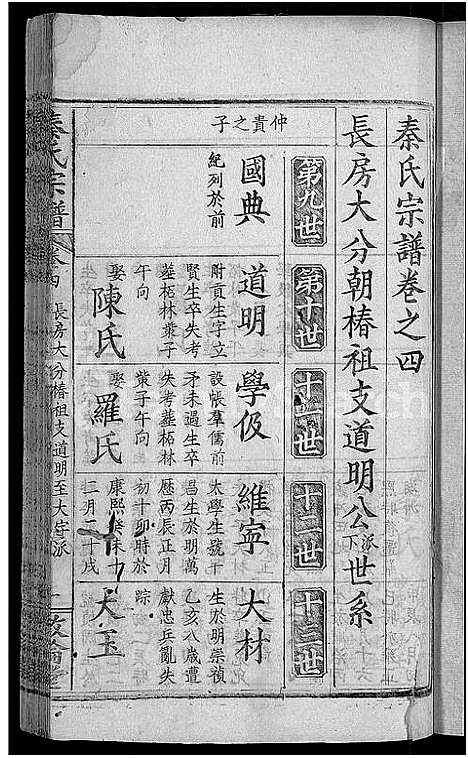 秦氏宗譜卷之四
長房大分朝椿祖支道明公派下世系
第九世
第十世
十一世
十二世
十三世
仲貴之子
國典
紀列於前
道明
附貢生字立
賢生卒失考
塟柘林葉子
午向
娶
陳氏
學伋
設帳羣儒前
矛未過生卒
失考塟柘林
葉子午向
娶
羅氏
維寧
太學生號干
昌生於明萬
歷丙辰正月
初十卯時於
康熙癸未十
二月二十戌
大材
生於明崇禎
乙亥八歲遭
獻忠兵亂失
踪
大玉
秦氏宗譜
卷四
長房大分椿祖支道明至大字派